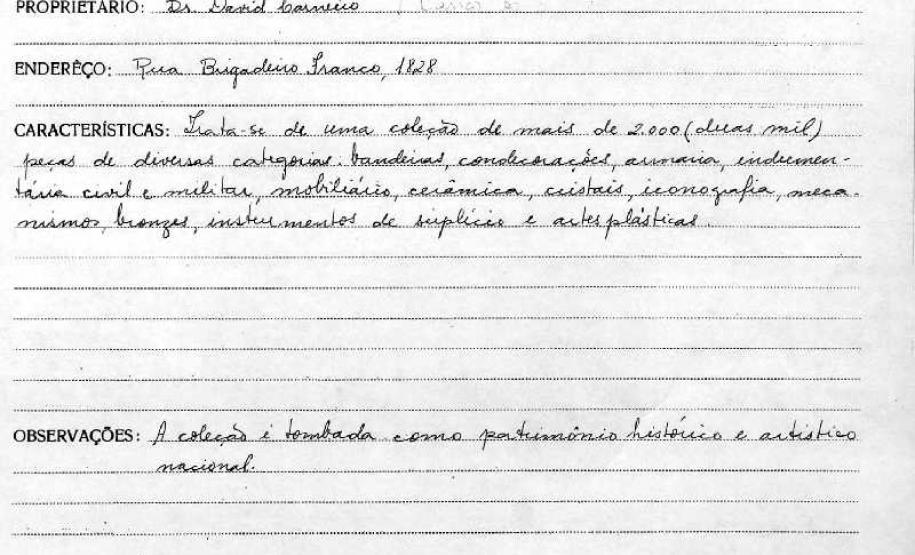 PROPRIETÁRIO: Dr David Carneiro
ENDERÊÇO: Rua Brigadeiro Franco, 1828
CARACTERÍSTICAS: Trata-se de uma coleção de mais de 2.000 (duas mil)
peças de diversas categorias. bandeiras, condecorações, armaria, indumen-
tária civil e militar, mobiliário, cerâmica, cristais, iconografia, meca-
nismos, bronzes, instrumentos de suplício e artes plásticas.
OBSERVAÇÕES: A coleção é tombada como patrimônio histórico e artístico
nacional.